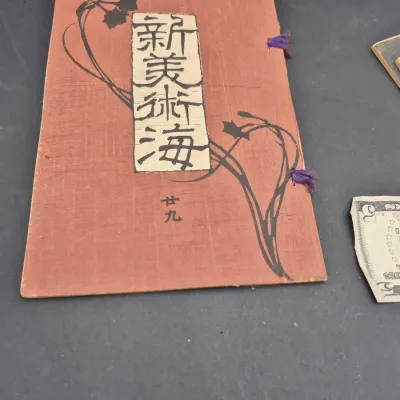 新美術海
廿九